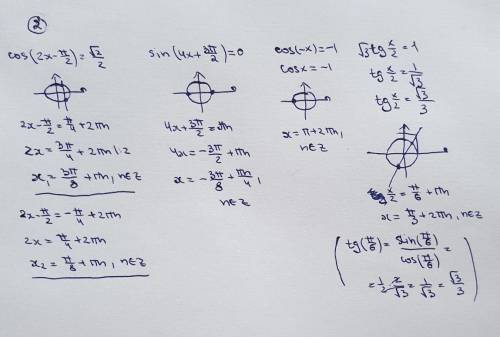 ②
cos(2x-π/2)=√2/2
2x-π/2=π/4+2πn
2x=3π/4+2πn |:2
x₁=3π/8+πn, n∈Z
2x-π/2=-π/4+2πn
2x=π/4+2πn
x₂=π/8+πn, n∈Z
sin(4x+3π/2)=0
4x+3π/2=πn
4x=-3π/2+πn
x=-3π/8+πn/4,
n∈Z
cos(-x)=-1
cosx=-1
x=π+2πn,
n∈Z
√3tg x/2=1
tg x/2=1/√3
tg x/2=√3/3
x/2=π/6+πn
x=π/3+2πn, n∈Z
(tg(π/6)=sin(π/6)/cos(π/6)=
=1/2·2/√3=1/√3=√3/3)